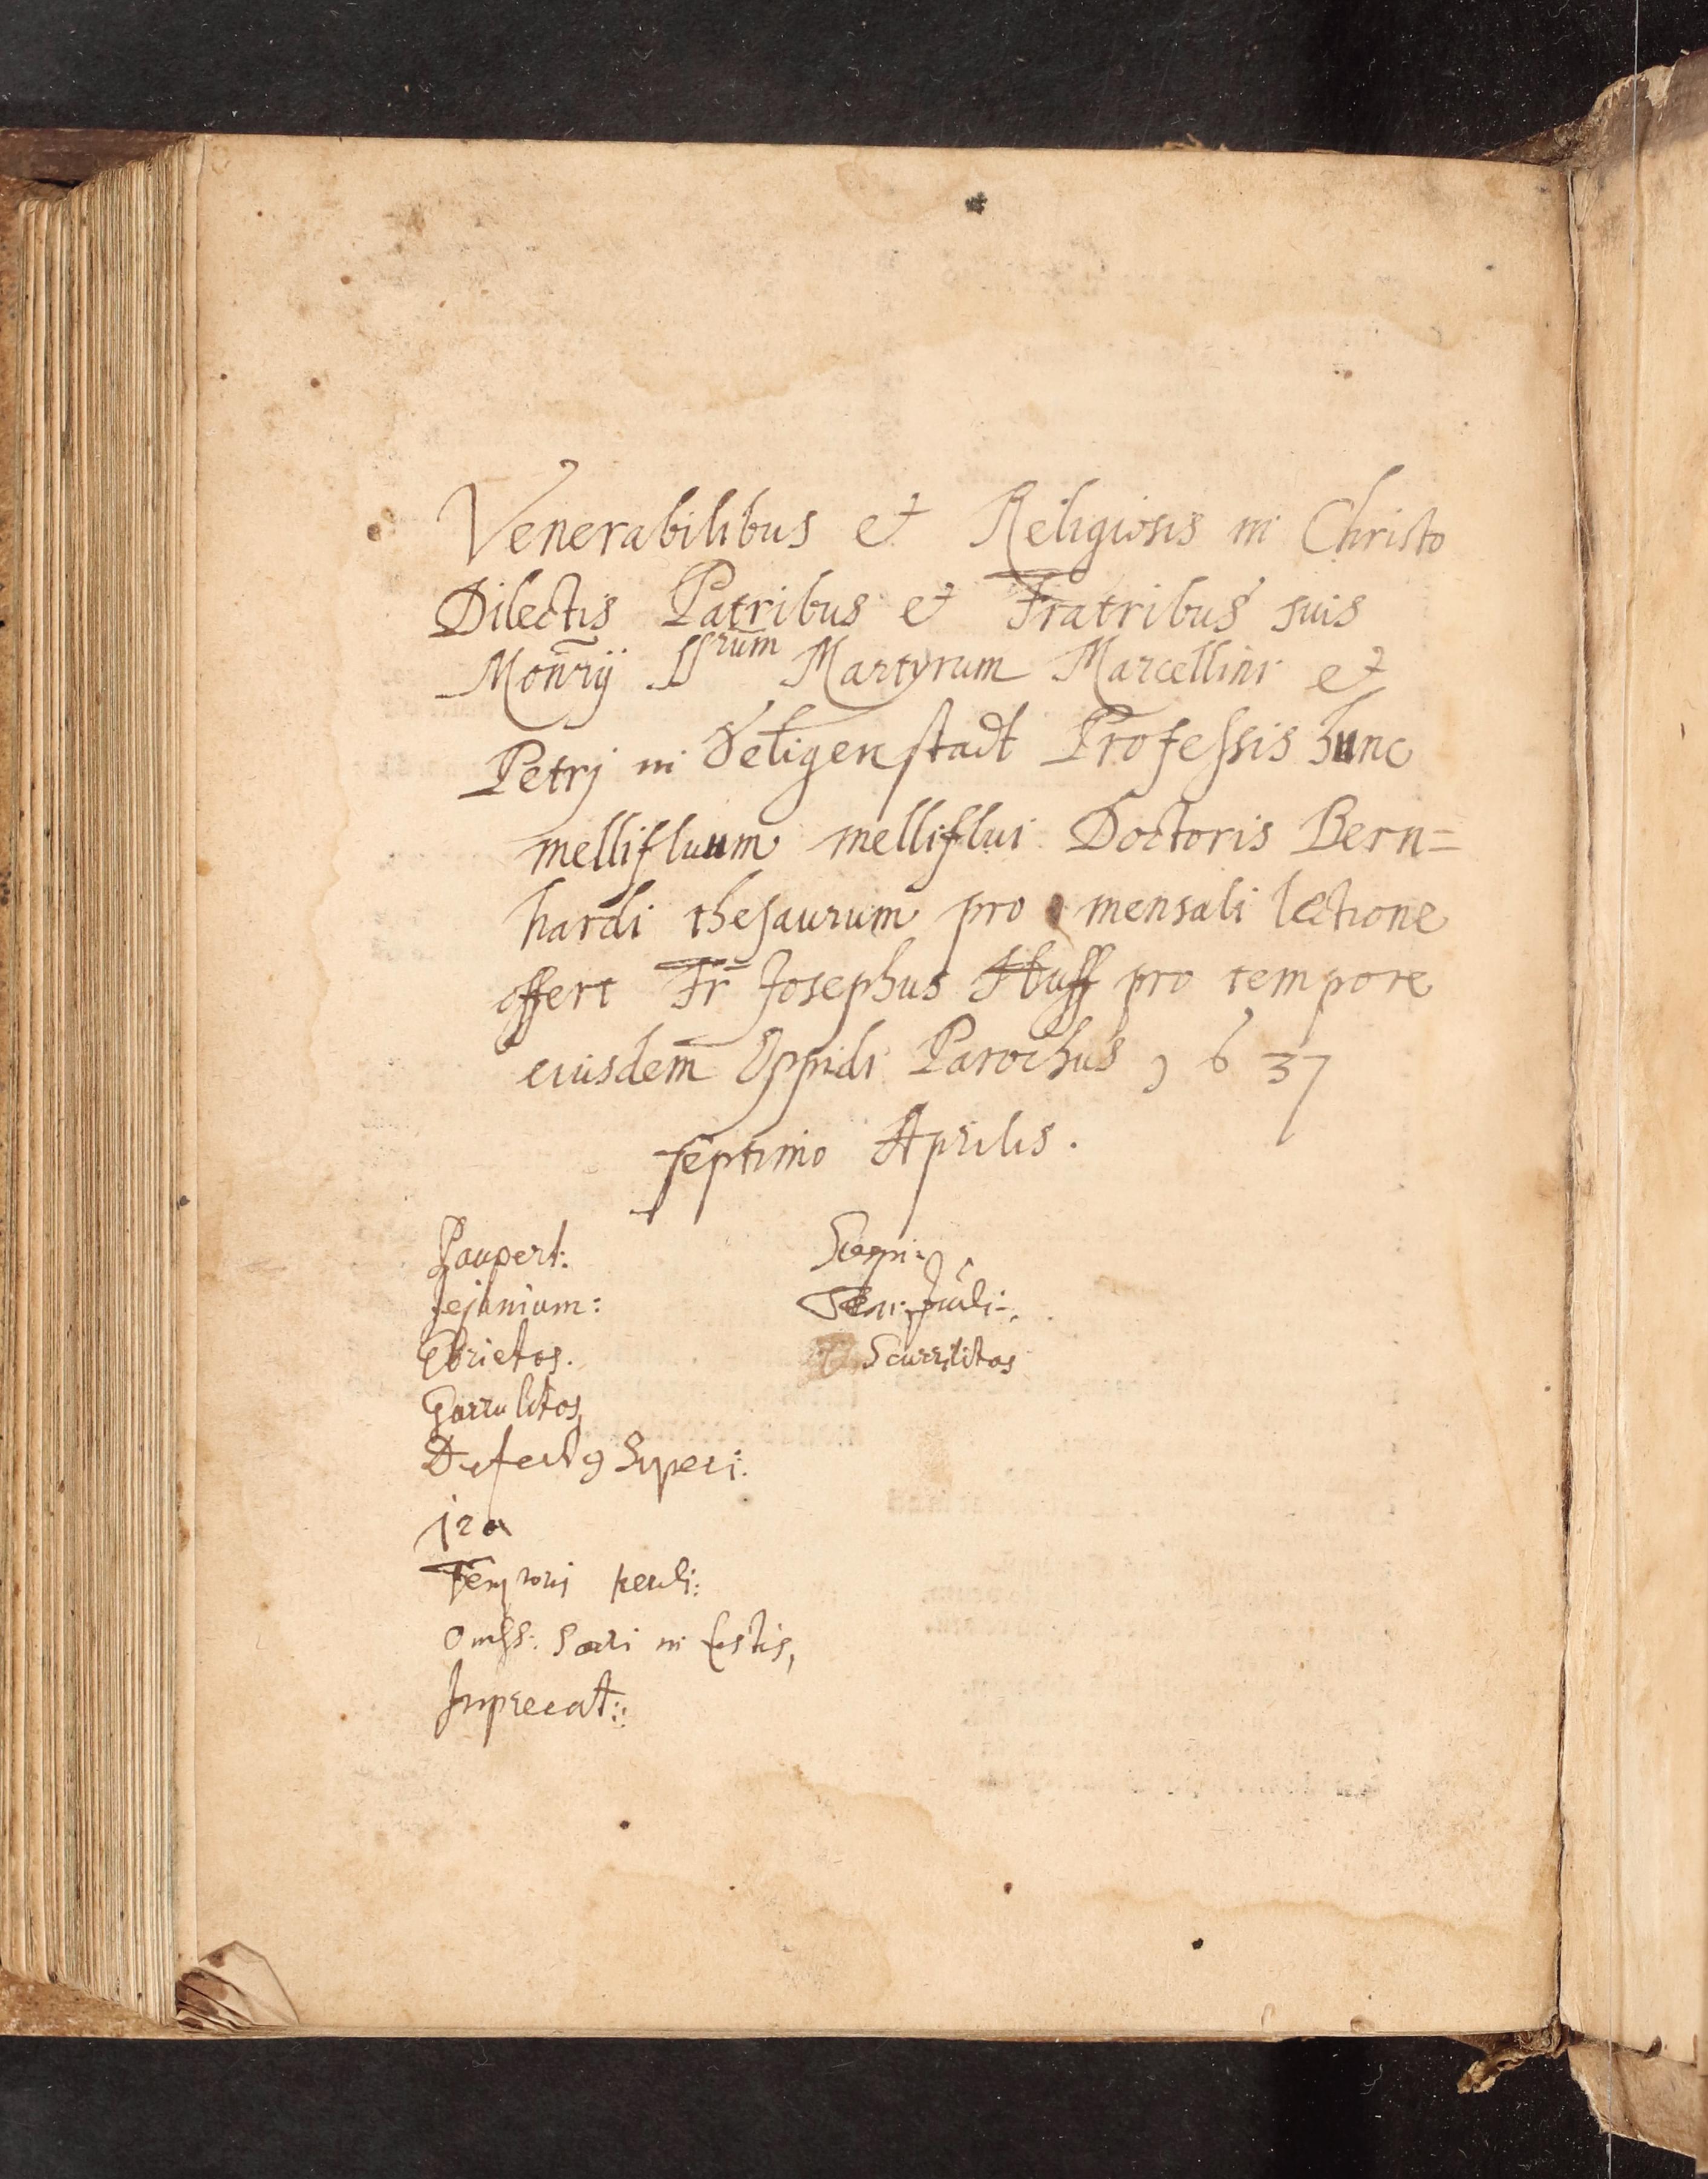 Venerabilibus et Religiosis in Christo
Dilectis Patribus et Fratribus suis
Monrij SSrum Martyrum Marcellini et
Petrj in Seligenstadt Professis hunc
mellifluum melliflui Doctoris Bern=
hardi thesaurum pro mensali lectione
offert Fr Josephus Huff pro tempore
eiusdem Oppidi Parochus 1637
septimo Aprilis.
Paupert:
Jejunium:
Ebrietas.
Garrulitas,
Defectus Superi:
jra
Temporis perdi:
Omiss: Sacri in festis,
Imprecat:
Scurrilitas